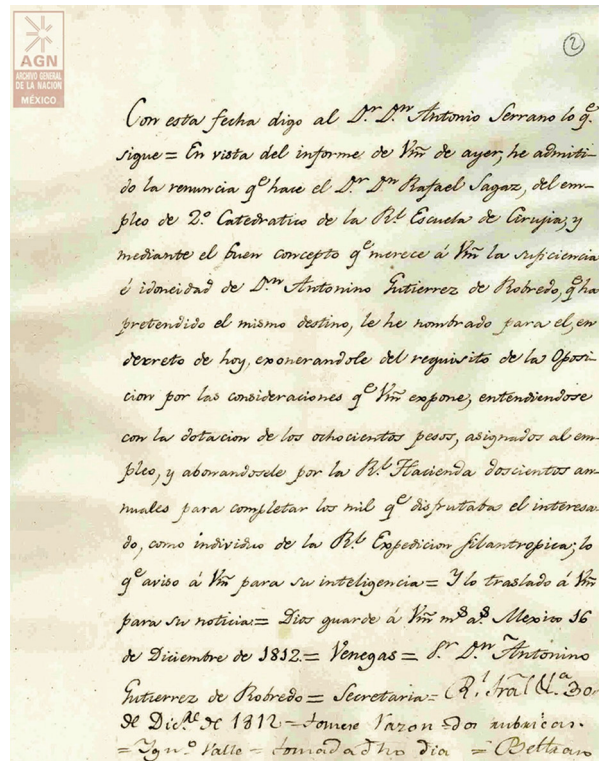 AGN
ARCHIVO GENERAL
DE LA NACIÓN
MÉXICO
2
Con esta fecha digo al Dr. Dn. Antonio Serrano lo qe.
sigue = En vista del informe de Vm̃ de ayer, he admiti-
do la renuncia qe. hace el Dr. Dn. Rafael Sagaz, del em-
pleo de 2º. Catedratico de la Rl. Escuela de Cirugia; y
mediante el buen concepto qe. merece á Vm̃ la suficiencia
é idoneidad de Dn. Antonino Gutierrez de Robredo, qe. ha
pretendido el mismo destino, le he nombrado para el, en
decreto de hoy, exonerandole del requisito de la Oposi-
cion por las consideraciones qe. Vm̃ expone, entendiendose
con la dotacion de los ochocientos pesos, asignados al em-
pleo, y abonandosele por la Rl. Hacienda doscientos an-
nuales para completar los mil qe. disfrutaba el interesa-
do, como individuo de la Rl. Expedicion filantropica; lo
qe. aviso á Vm̃ para su inteligencia = Y lo traslado á Vm̃
para su noticia = Dios guarde á Vm̃ ms. as. Mexico 16
de Diciembre de 1812. = Venegas = Sr. Dn. Antonino
Gutierrez de Robredo = Secretaria =
de Dicre. de 1812 = tomose razon = dos rubricas.
= Ygno. Valle = tomada dho dia = Beltran